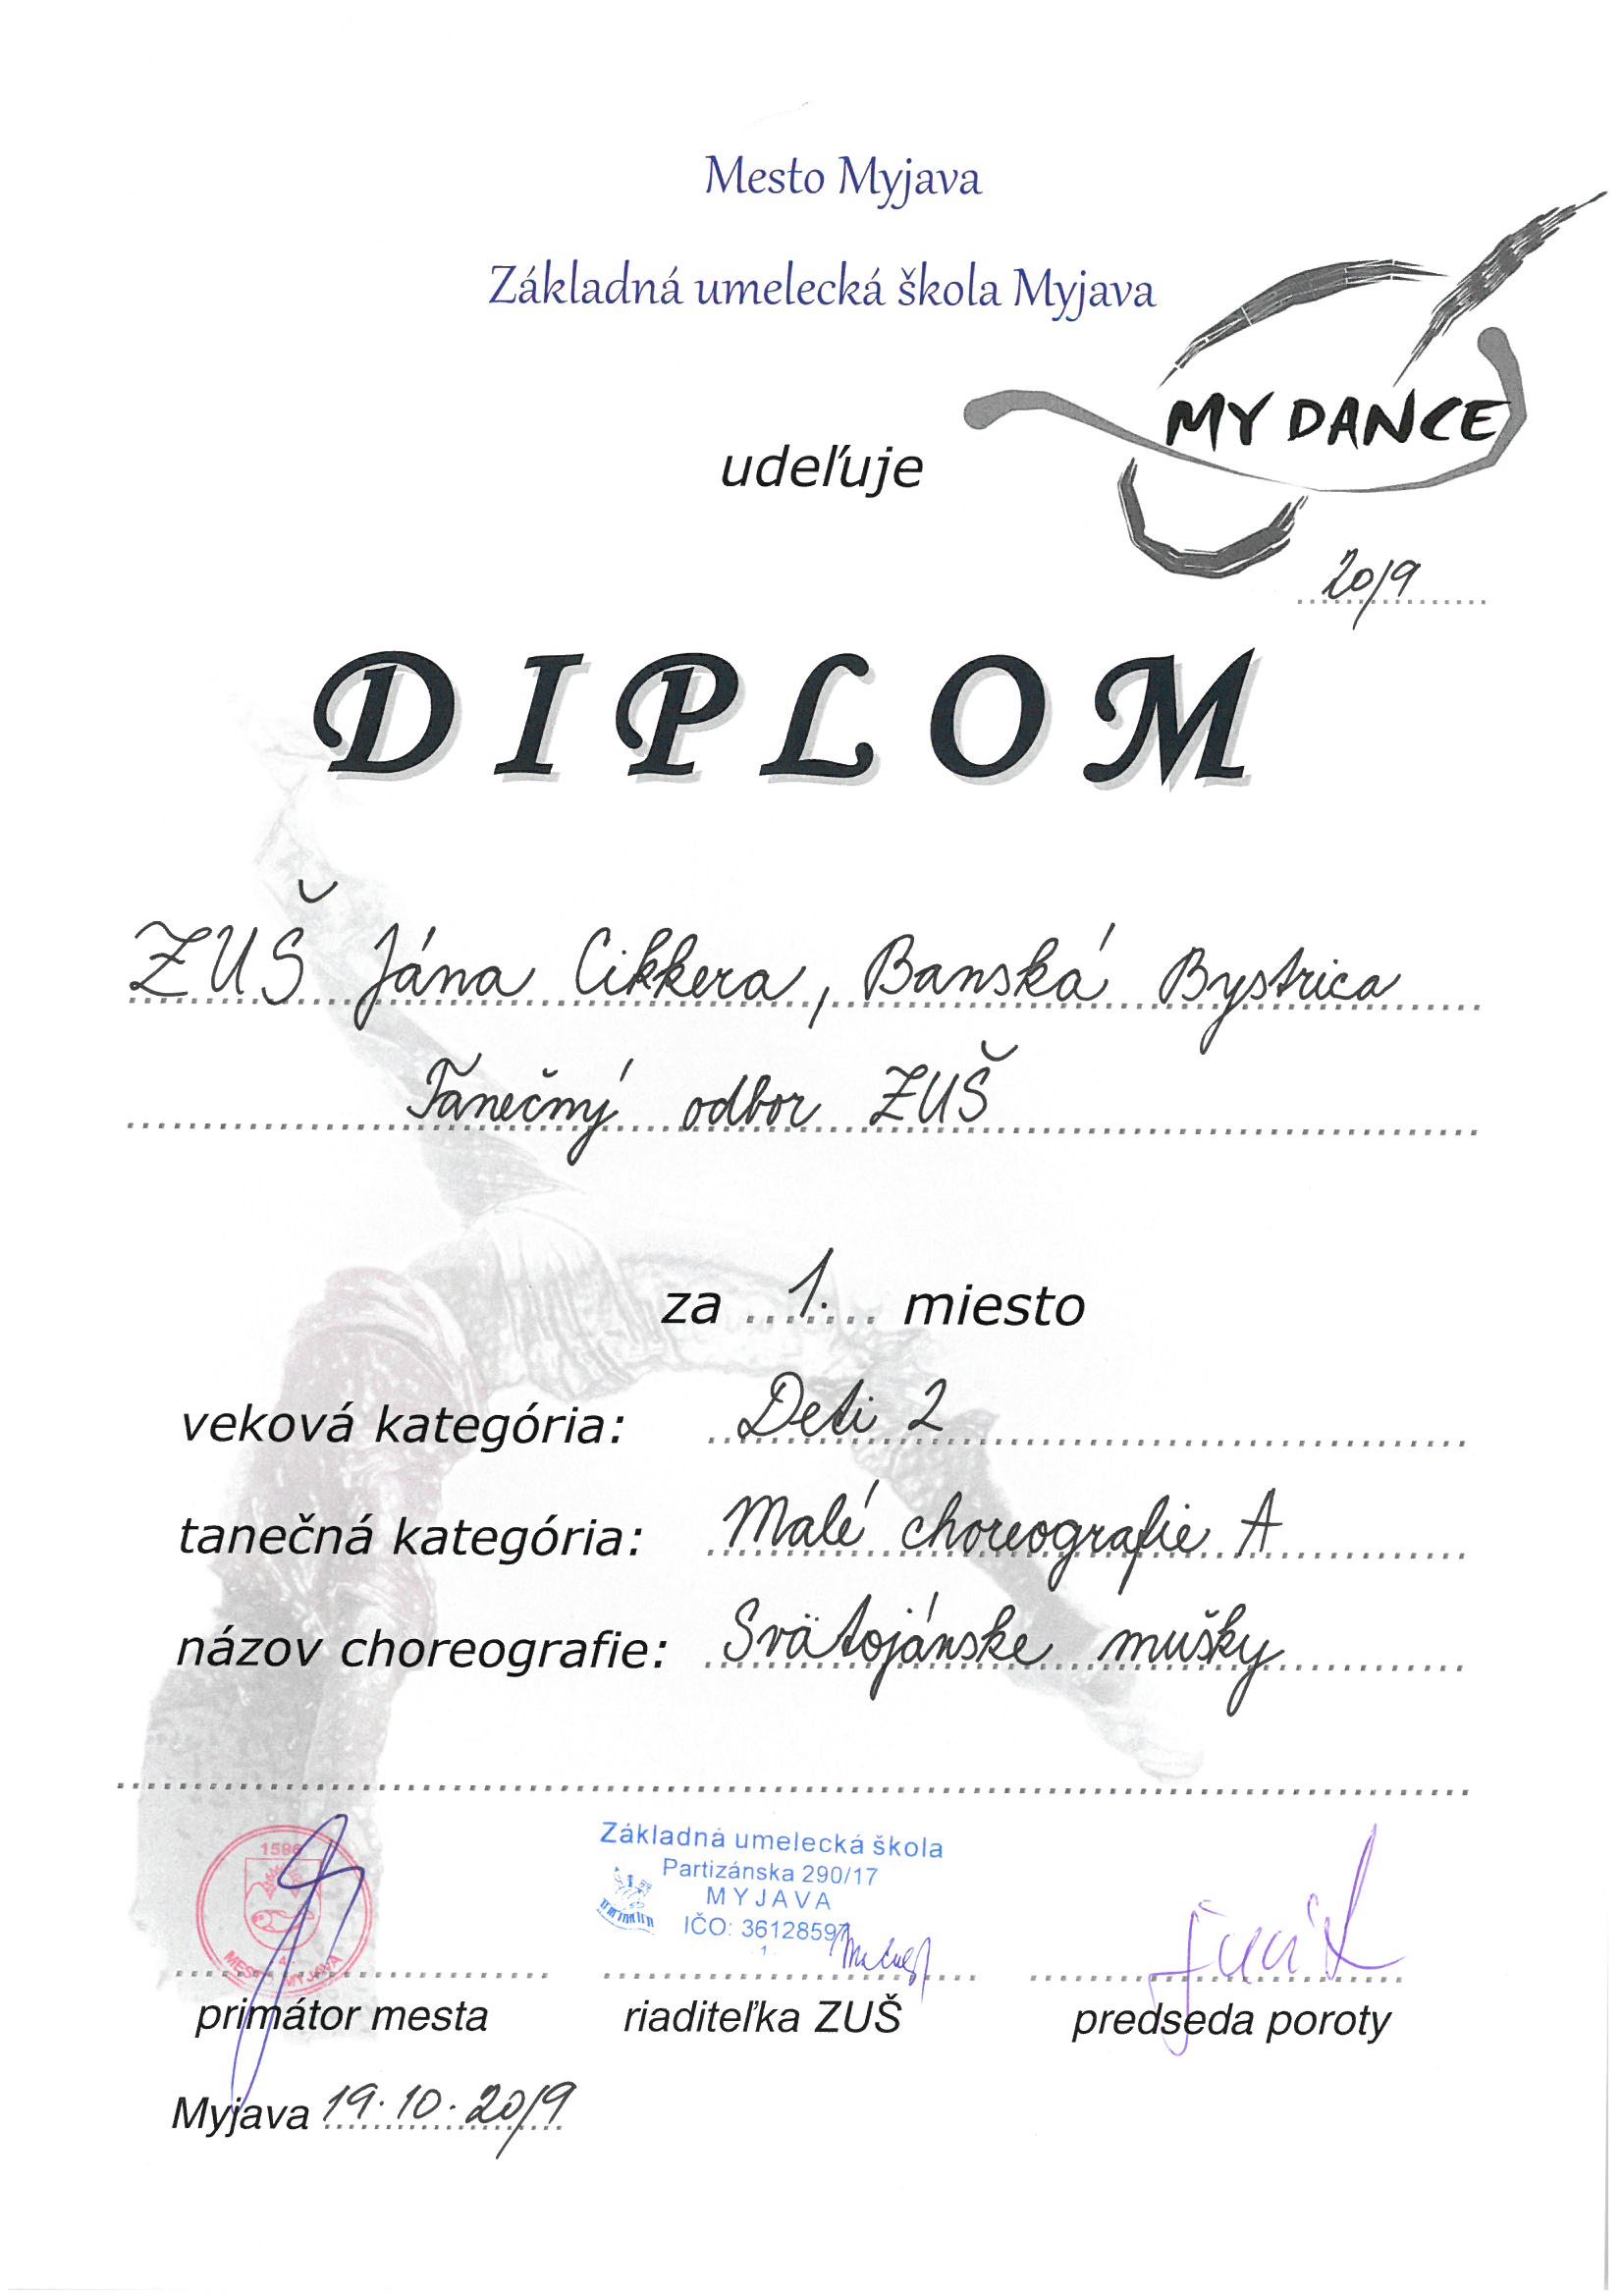 Mesto Myjava
Základná umelecká škola Myjava
MY DANCE
udeľuje
2019
DIPLOM
ZUŠ Jána Cikkera, Banská Bystrica
Tanečný odbor ZUŠ
za 1. miesto
veková kategória: Deti 2
tanečná kategória: Malé choreografie A
názov choreografie: Svätojánske mušky
1586
MESTO MYJAVA
4
Základná umelecká škola
Partizánska 290/17
MYJAVA
IČO: 36128597
- 1 -
primátor mesta
riaditeľka ZUŠ
predseda poroty
Myjava 19.10.2019